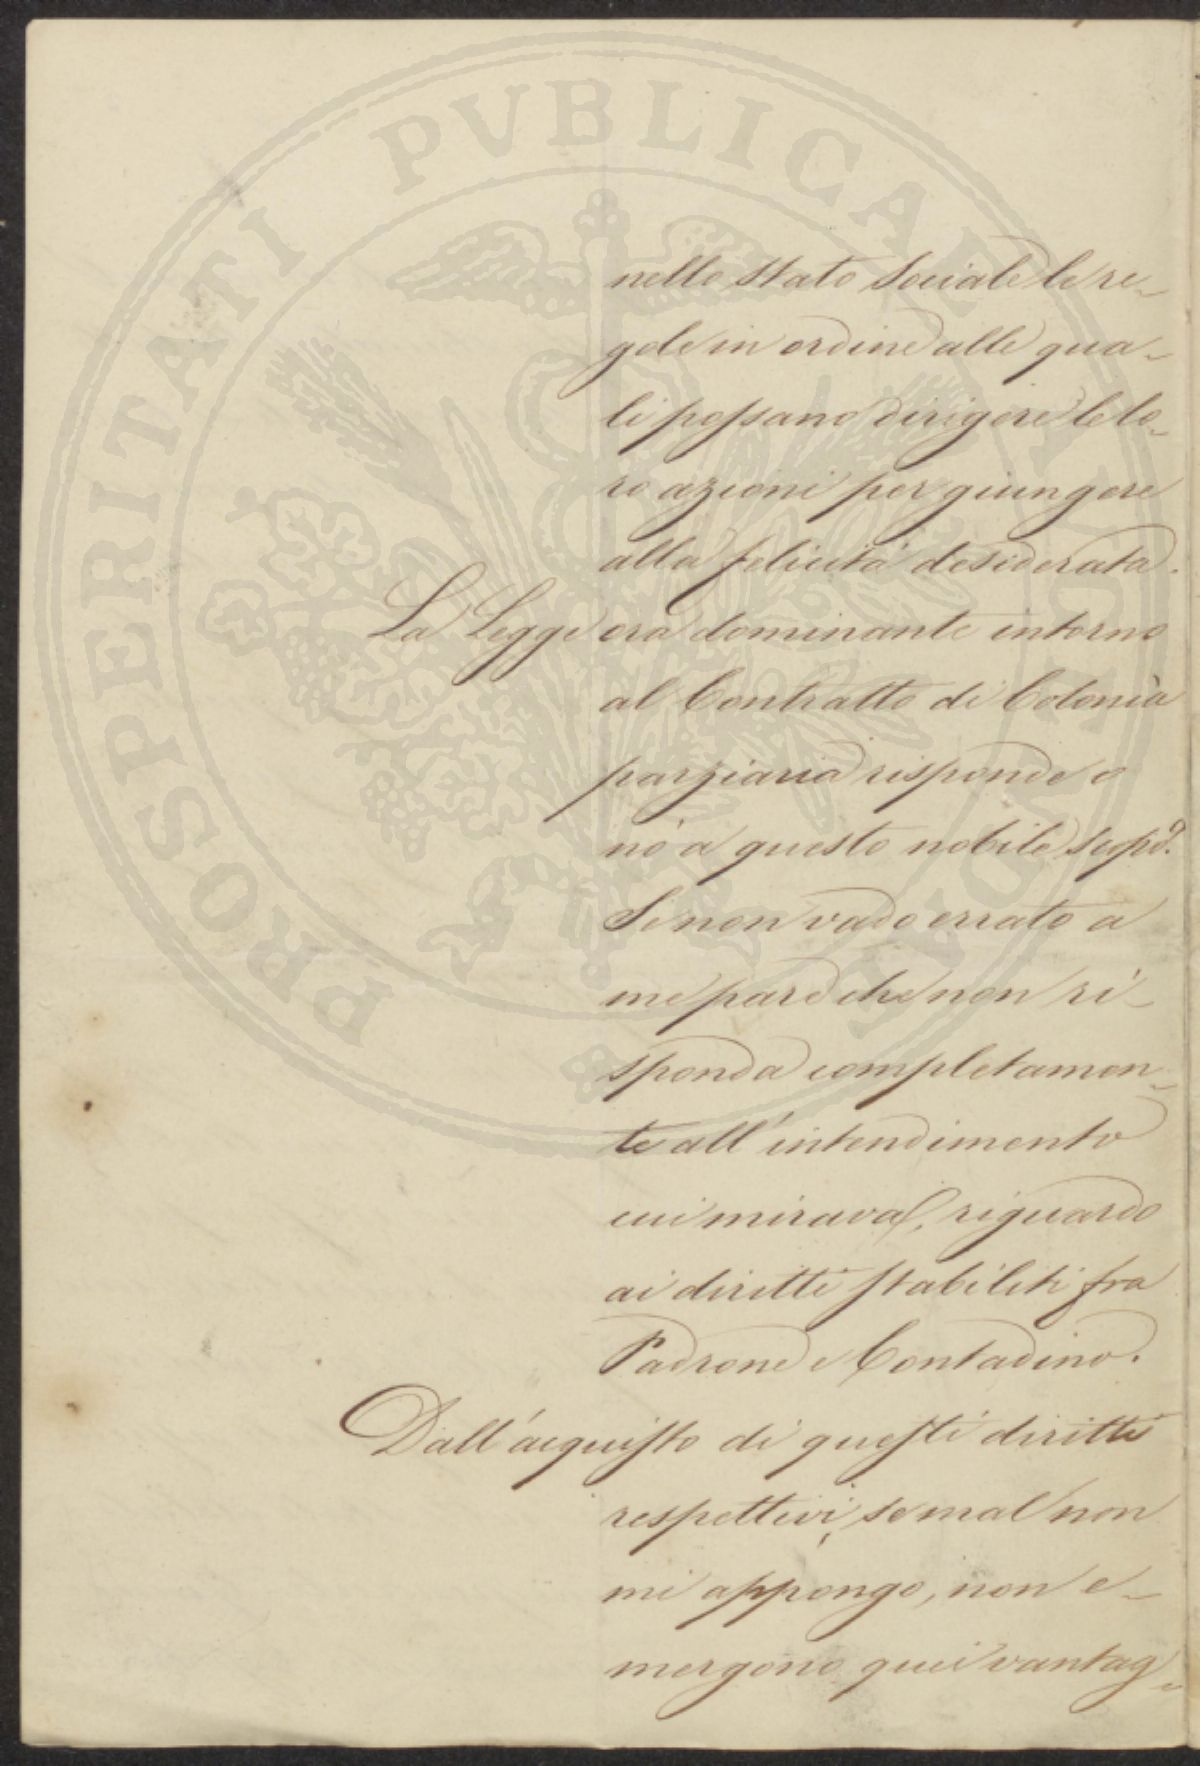 nello Stato Sociale le re-
gole in ordine alle qua-
li possano dirigere le lo-
ro azioni per giungere
alla felicità desiderata.
La Legge ora dominante intorno
al Contratto di Colonìa
parziaria risponde o
nò a questo nobile scopo?
Se non vado errato a
me pare che non ri-
sponda completamen-
te all'intendimento
cui mirava, riguardo
ai diritti stabiliti fra
Padrone e Contadino.
Dall'acquisto di questi diritti
respettivi, se mal non
mi appongo, non e-
mergono quei vantag-
PROSPERITATI PVBLICAE